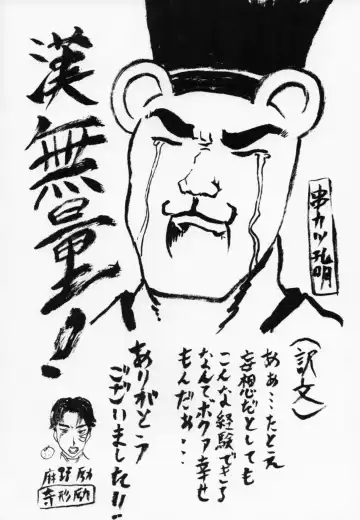 漢無量！
串カツ孔明
(訳文)
ああ…たとえ
妄想だとしても
こんな経験できる
なんてボカァ幸せ
もんだぁ…
ありがとう
ございました!!
麻野 励
寺杉 励